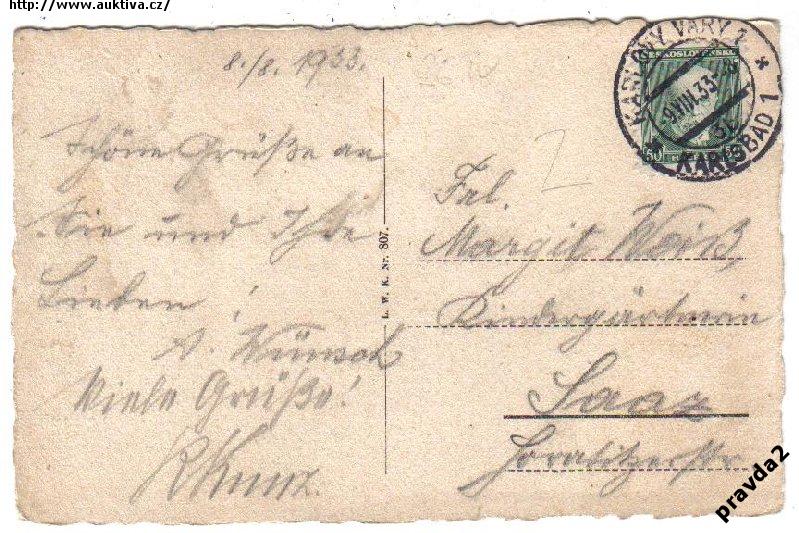 http://www.auktiva.cz/
8./8. 1933.
Schöne Grüße an
Sie und Ihre
Lieben!
A. Wünsch
Viele Grüße!
RKunz.
L. W. K. Nr. 807.
KARLOVY VARY 1
ČESKOSLOVENSKO
9.VIII.33
3c
KARLSBAD 1
50
2
Frl.
Margit Weiß
Kindergärtnerin
Saaz
pravda2